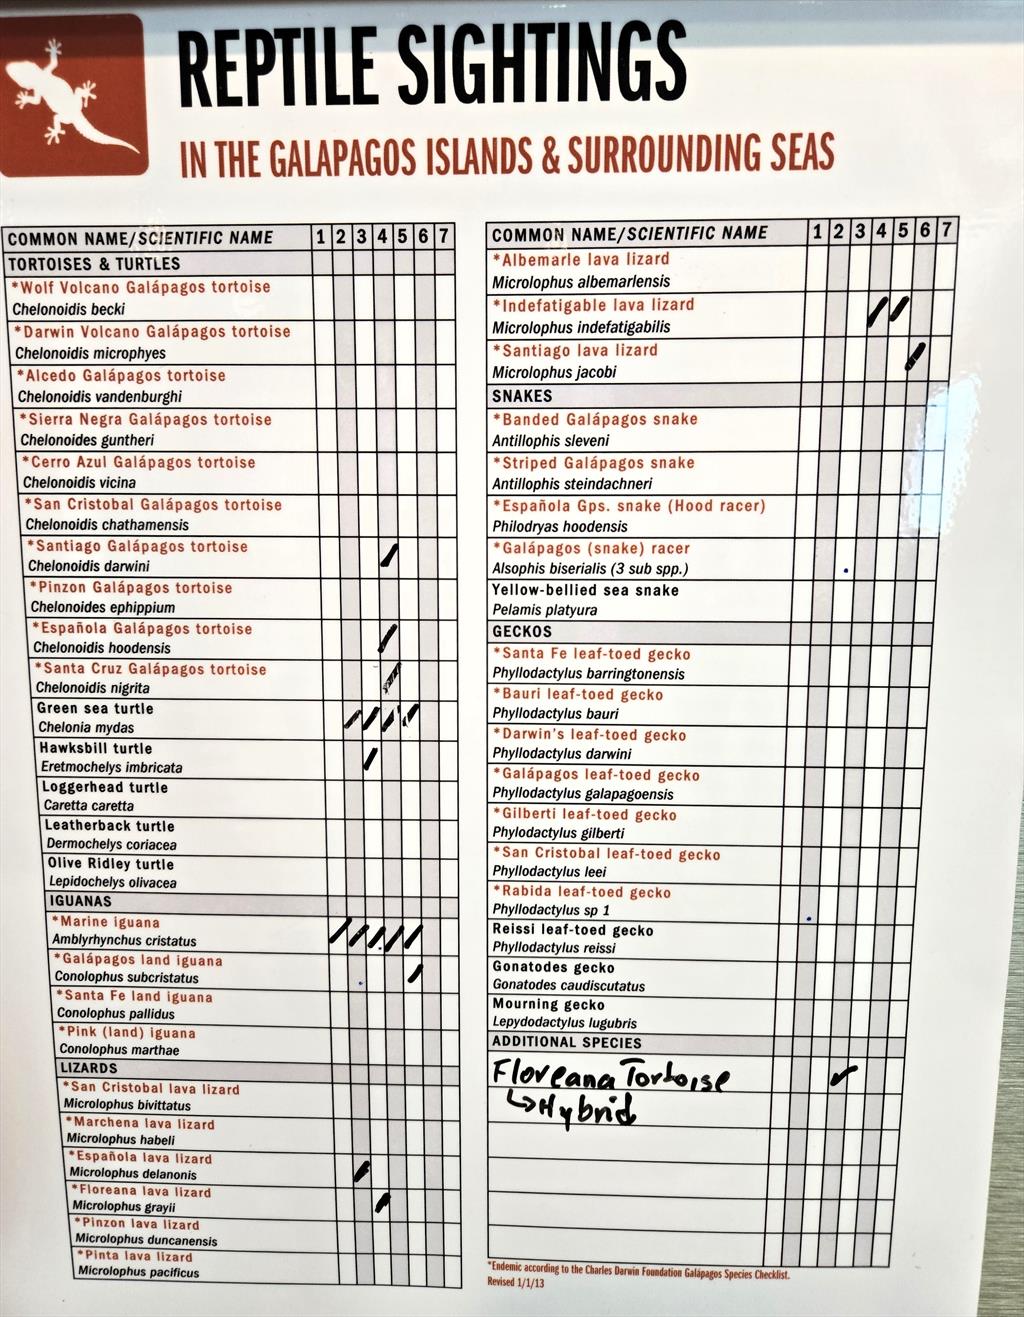 REPTILE SIGHTINGS
IN THE GALAPAGOS ISLANDS & SURROUNDING SEAS
COMMON NAME/SCIENTIFIC NAME 1 2 3 4 5 6 7
TORTOISES & TURTLES
*Wolf Volcano Galápagos tortoise
Chelonoidis becki
*Darwin Volcano Galápagos tortoise
Chelonoidis microphyes
*Alcedo Galápagos tortoise
Chelonoidis vandenburghi
*Sierra Negra Galápagos tortoise
Chelonoides guntheri
*Cerro Azul Galápagos tortoise
Chelonoidis vicina
*San Cristobal Galápagos tortoise
Chelonoidis chathamensis
*Santiago Galápagos tortoise
Chelonoidis darwini
*Pinzon Galápagos tortoise
Chelonoides ephippium
*Española Galápagos tortoise
Chelonoidis hoodensis
*Santa Cruz Galápagos tortoise
Chelonoidis nigrita
Green sea turtle
Chelonia mydas
Hawksbill turtle
Eretmochelys imbricata
Loggerhead turtle
Caretta caretta
Leatherback turtle
Dermochelys coriacea
Olive Ridley turtle
Lepidochelys olivacea
IGUANAS
*Marine iguana
Amblyrhynchus cristatus
*Galápagos land iguana
Conolophus subcristatus
*Santa Fe land iguana
Conolophus pallidus
*Pink (land) iguana
Conolophus marthae
LIZARDS
*San Cristobal lava lizard
Microlophus bivittatus
*Marchena lava lizard
Microlophus habeli
*Española lava lizard
Microlophus delanonis
*Floreana lava lizard
Microlophus grayii
*Pinzon lava lizard
Microlophus duncanensis
*Pinta lava lizard
Microlophus pacificus
COMMON NAME/SCIENTIFIC NAME 1 2 3 4 5 6 7
*Albemarle lava lizard
Microlophus albemarlensis
*Indefatigable lava lizard
Microlophus indefatigabilis
*Santiago lava lizard
Microlophus jacobi
SNAKES
*Banded Galápagos snake
Antillophis sleveni
*Striped Galápagos snake
Antillophis steindachneri
*Española Gps. snake (Hood racer)
Philodryas hoodensis
*Galápagos (snake) racer
Alsophis biserialis (3 sub spp.)
Yellow-bellied sea snake
Pelamis platyura
GECKOS
*Santa Fe leaf-toed gecko
Phyllodactylus barringtonensis
*Bauri leaf-toed gecko
Phyllodactylus bauri
*Darwin's leaf-toed gecko
Phyllodactylus darwini
*Galápagos leaf-toed gecko
Phyllodactylus galapagoensis
*Gilberti leaf-toed gecko
Phylodactylus gilberti
*San Cristobal leaf-toed gecko
Phyllodactylus leei
*Rabida leaf-toed gecko
Phyllodactylus sp 1
Reissi leaf-toed gecko
Phyllodactylus reissi
Gonatodes gecko
Gonatodes caudiscutatus
Mourning gecko
Lepydodactylus lugubris
ADDITIONAL SPECIES
Floreana Tortoise ✓
↳Hybrid
*Endemic according to the Charles Darwin Foundation Galápagos Species Checklist.
Revised 1/1/13